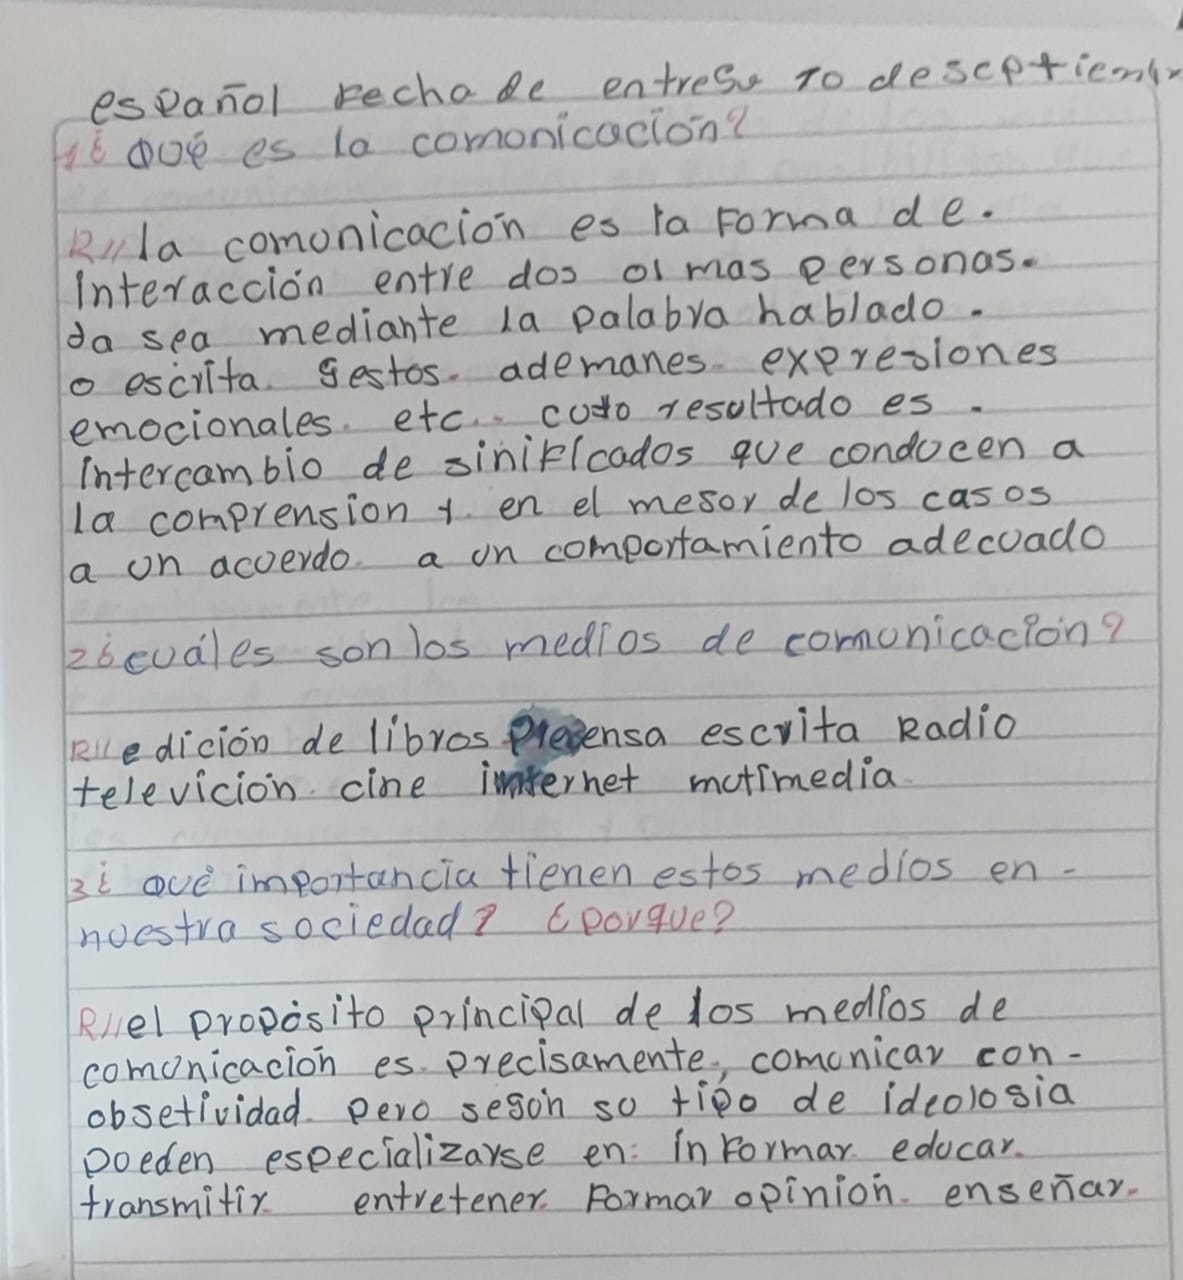 español fecha de entrega 10 de septiembr
1¿ Qué es la comunicación?
R// la comunicación es la Forma de.
interacción entre dos ol mas personas.
ya sea mediante la palabra hablado.
o escrita. gestos. ademanes. expresiones
emocionales. etc.. cuyo resultado es.
intercambio de sinificados que conducen a
la comprension y. en el mesor de los casos
a un acuerdo. a un comportamiento adecuado
2¿ cuáles son los medios de comunicación?
R// edición de libros Prensa escrita Radio
televición. cine internet mutimedia.
3¿ qué importancia tienen estos medios en -
nuestra sociedad? ¿porque?
R// el propósito principal de los medios de
comunicación es. precisamente, comunicar con -
obsetividad. pero segón so tipo de ideologia
pueden especializarse en: inFormar. educar.
transmitir. entretener. Formar opinión. enseñar.